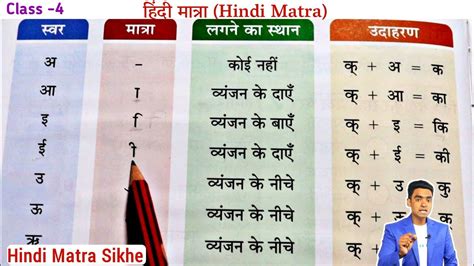 Class -4
हिंदी मात्रा (Hindi Matra)
स्वर मात्रा लगने का स्थान उदाहरण
अ - कोई नहीं क् + अ = क
आ ा व्यंजन के दाएँ क् + आ = का
इ ि व्यंजन के बाएँ क् + इ = कि
ई ी व्यंजन के दाएँ क् + ई = की
उ व्यंजन के नीचे क् + उ = कु
ऊ व्यंजन के नीचे क्
ऋ व्यंजन के नीचे क्
Hindi Matra Sikhe